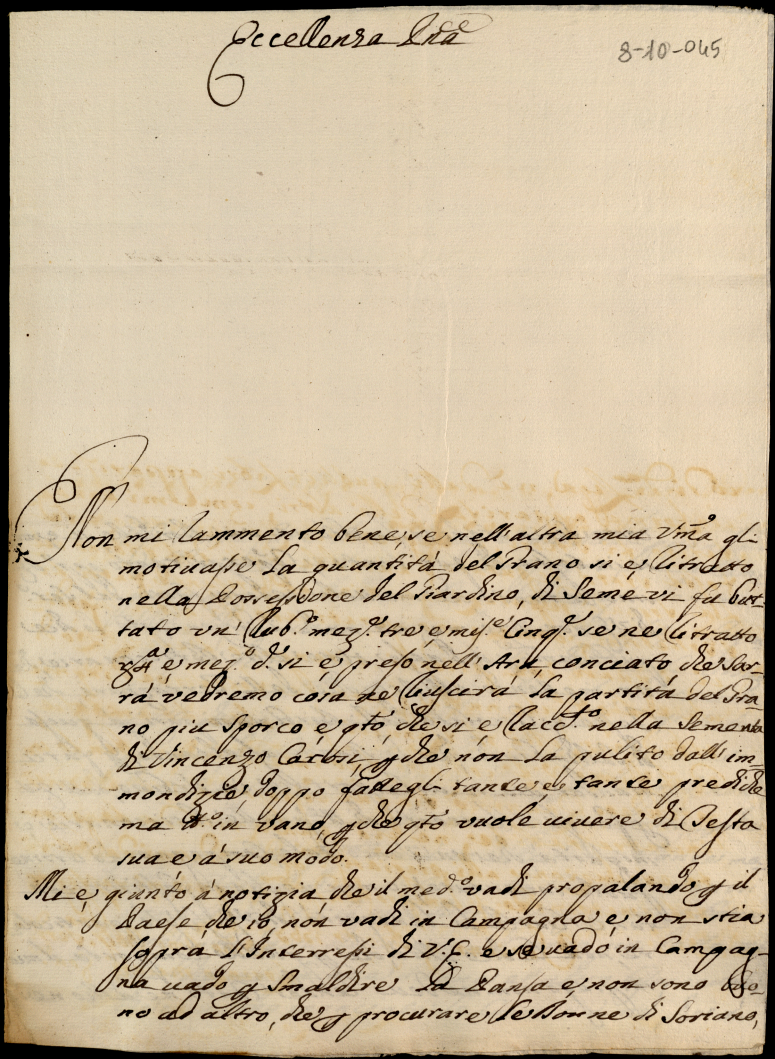 Eccellenza Pnā
8-10-045
Non mi rammento bene se nell'altra mia Vmã gli
motivasse la quantità del Grano si è ritratto
nella Possessione del Giardino, di Seme vi fu but-
tato un' Rub.º mez.º tre e mis.e Cinq.e se ne ritratto
e mez.º d.e si è preso nell'Ara, conciato che sar-
rà vedremo cosa ne riuscirà la partita del Gra-
no piu sporco e q.to che si è racc.to nella Sementa
di Vincenzo Carosi, p che non la pulito dall'im-
mondizie doppo fattegli tante, e tante prediche
ma t.o in vano, p che q.to vuole vivere di Testa
sua e á suo modo.
Mi è giunto á notizia che il med.º vadi propalando p il
Paese che io non vadi in Campagna e non stia
sopra l'Interressi di V.E. e se vado in Campag-
na vado p smaldire la Pansa e non sono bo-
no ad altro, che p procurare le Donne di Soriano,